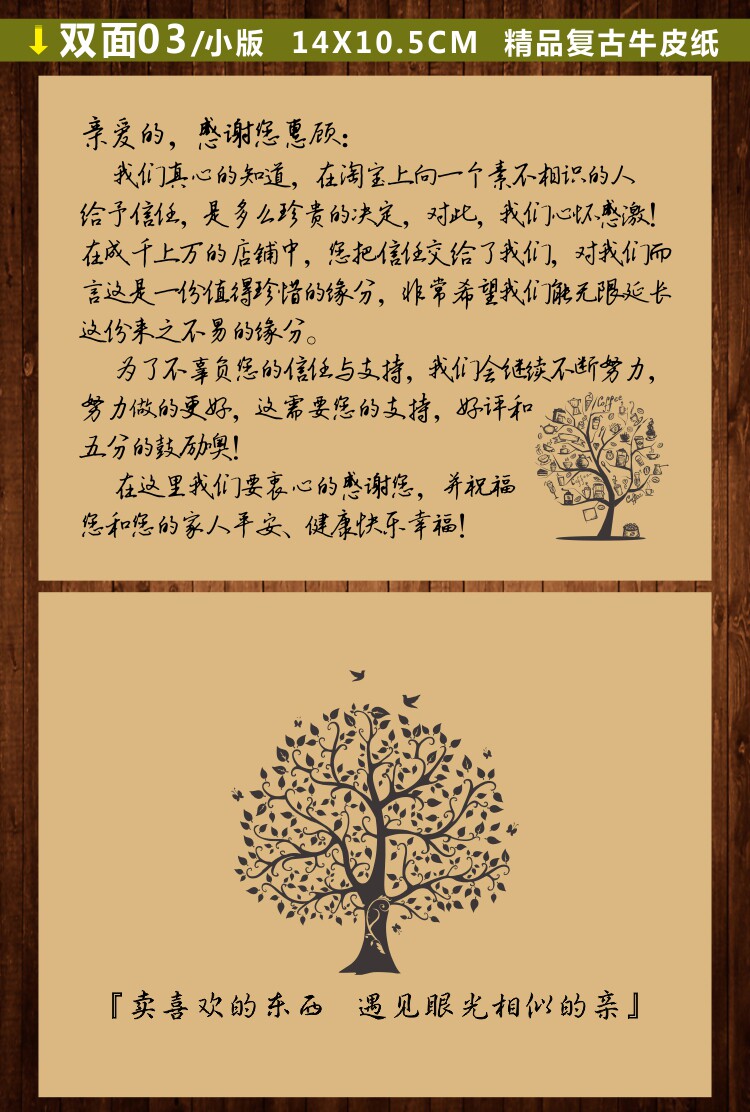 双面03/小版 14X10.5CM 精品复古牛皮纸
亲爱的，感谢您惠顾：
我们真心的知道，在淘宝上向一个素不相识的人
给予信任，是多么珍贵的决定，对此，我们心怀感激！
在成千上万的店铺中，您把信任交给了我们，对我们而
言这是一份值得珍惜的缘分，非常希望我们能无限延长
这份来之不易的缘分。
为了不辜负您的信任与支持，我们会继续不断努力，
努力做的更好，这需要您的支持，好评和
五分的鼓励噢！
在这里我们要衷心的感谢您，并祝福
您和您的家人平安、健康快乐幸福！
Coffee
『卖喜欢的东西 遇见眼光相似的亲』